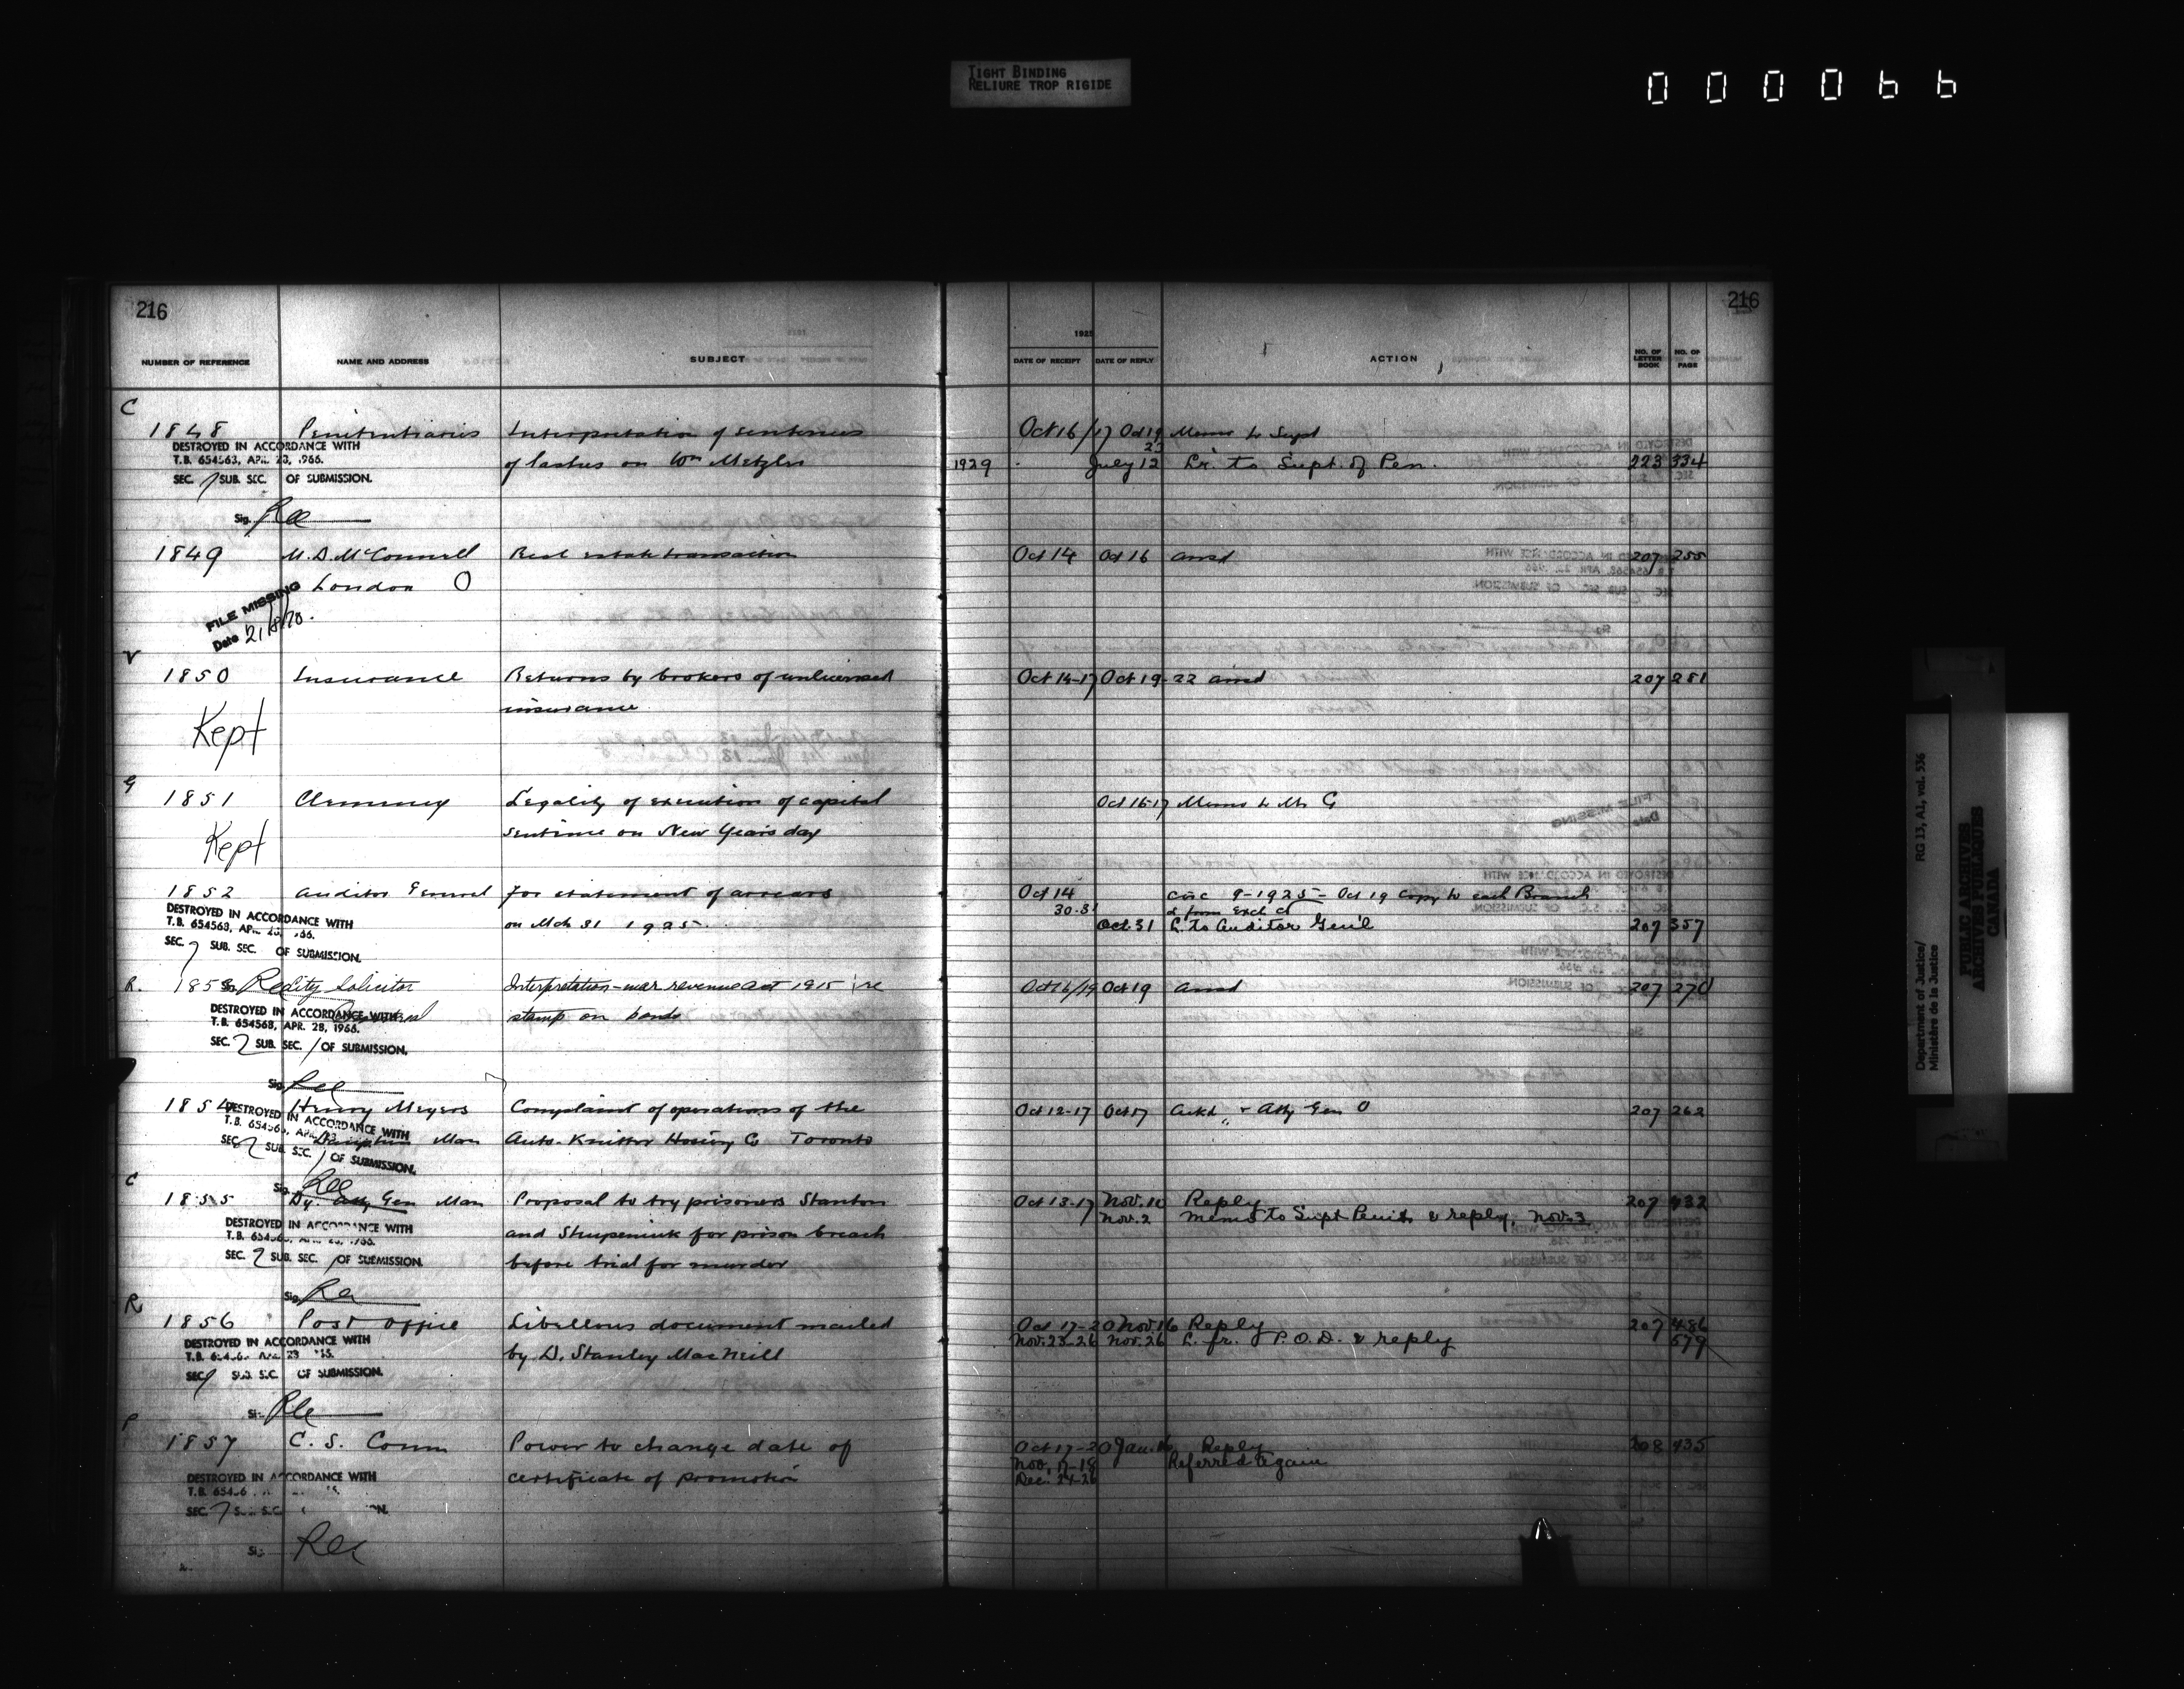 TIGHT BINDING
RELIURE TROP RIGIDE
000066
216
216
NUMBER OF REFERENCE NAME AND ADDRESS SUBJECT
1925
DATE OF RECEIPT DATE OF REPLY ACTION NO. OF LETTER BOOK NO. OF PAGE
C
1848 Penitentiaries Interpretation of sentences Oct 16/17 Oct 19 Memo to Supt
23
DESTROYED IN ACCORDANCE WITH
T.B. 654563, APR. 28, 1966.
of lashes on Wm Metzler 1929 July 12 Lr. to Supt. of Pen. 223 334
SEC. 7 SUB. SEC. OF SUBMISSION.
Sig. Ree
1849 M.D. McConnell Real estate transaction Oct 14 Oct 16 ansd 207 255
London O
FILE MISSING
Date 21/8/70.
V
1850 Insurance Returns by brokers of unlicensed Oct 14-17 Oct 19-22 ansd 207 281
insurance
Kept
G
1851 Clemency Legality of execution of capital Oct 16-17 Memo to Mr G
sentence on New Years day
Kept
1852 Auditor General for statement of arrears Oct 14 Circ 9-1925 - Oct 19 Copy to each Branch
30-31 & from Exch Ct
on Mch 31 1925. Oct. 31 L. to Auditor Gen'l 207 357
DESTROYED IN ACCORDANCE WITH
T.B. 654563, APR. 28, 1966.
SEC. 7 SUB. SEC. OF SUBMISSION.
R. 1853 City Solicitor Interpretation - war revenue act 1915 re Oct 16/19 Oct 19 ansd 207 270
Sig. Ree
stamp on bonds
DESTROYED IN ACCORDANCE WITH
T.B. 654563, APR. 28, 1966.
SEC. 7 SUB. SEC. / OF SUBMISSION.
Sig. Ree
1854 Henry Meyers Complaint of operations of the Oct 12-17 Oct 17 Ackd " & Atty Gen O 207 262
Man Auto-Knitter Hosiery Co Toronto
DESTROYED IN ACCORDANCE WITH
SEC. 7 SUB. SEC. / OF SUBMISSION.
Sig. Ree
C
1855 Dy. Atty Gen Man Proposal to try prisoners Stanton Oct 13-17 Nov. 10 Reply 207 432
Nov. 2 Memo to Supt Penits & reply, Nov. 3
and Stupeniuk for prison breach
before trial for murder
DESTROYED IN ACCORDANCE WITH
SEC. 7 SUB. SEC. / OF SUBMISSION.
Sig. Ree
R
1856 Post Office Libellous document mailed Oct 17-20 Nov. 16 Reply 207 486
Nov. 23-26 Nov. 26 L. fr. P.O.D. & reply 579
by D. Stanley MacNeill
DESTROYED IN ACCORDANCE WITH
SEC. 7 SUB. SEC. OF SUBMISSION.
Ree
P
1857 C. S. Comm Power to change date of Oct 17-20 Jan. 16 Reply 208 435
Nov. 17-18 Referred again
Dec. 24-26
certificate of promotion
DESTROYED IN ACCORDANCE WITH
Ree
Department of Justice/
Ministère de la Justice
RG 13, A1, vol. 536
PUBLIC ARCHIVES
ARCHIVES PUBLIQUES
CANADA